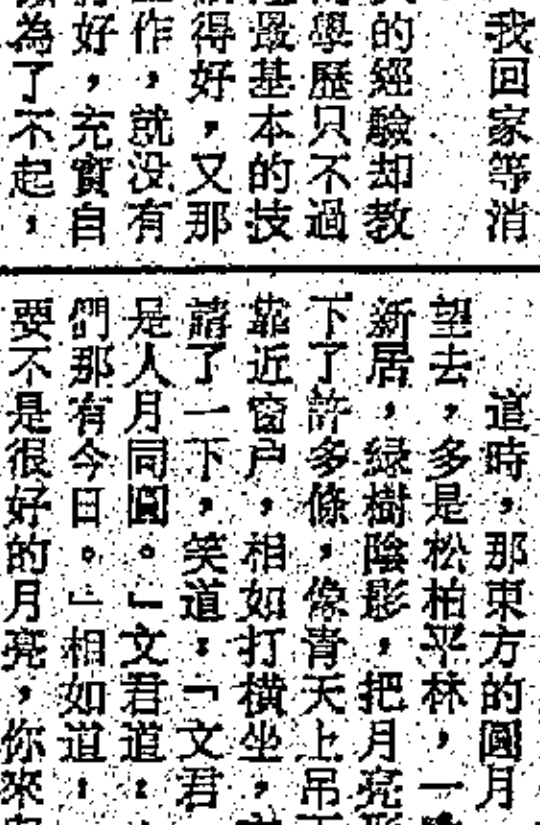 我回家等消
的經驗却教
學歷只不過
最基本的技
得好，又那
作，就没有
好，充實自
為了不起，
這時，那東方的圓月
望去，多是松柏平林，一
新居，綠樹陰影，把月亮
下了許多條，像青天上吊
靠近窗户，相如打橫坐，
請了一下，笑道：「文君
是人月同圓。」文君道：
們那有今日。」相如道：
要不是很好的月亮，你來